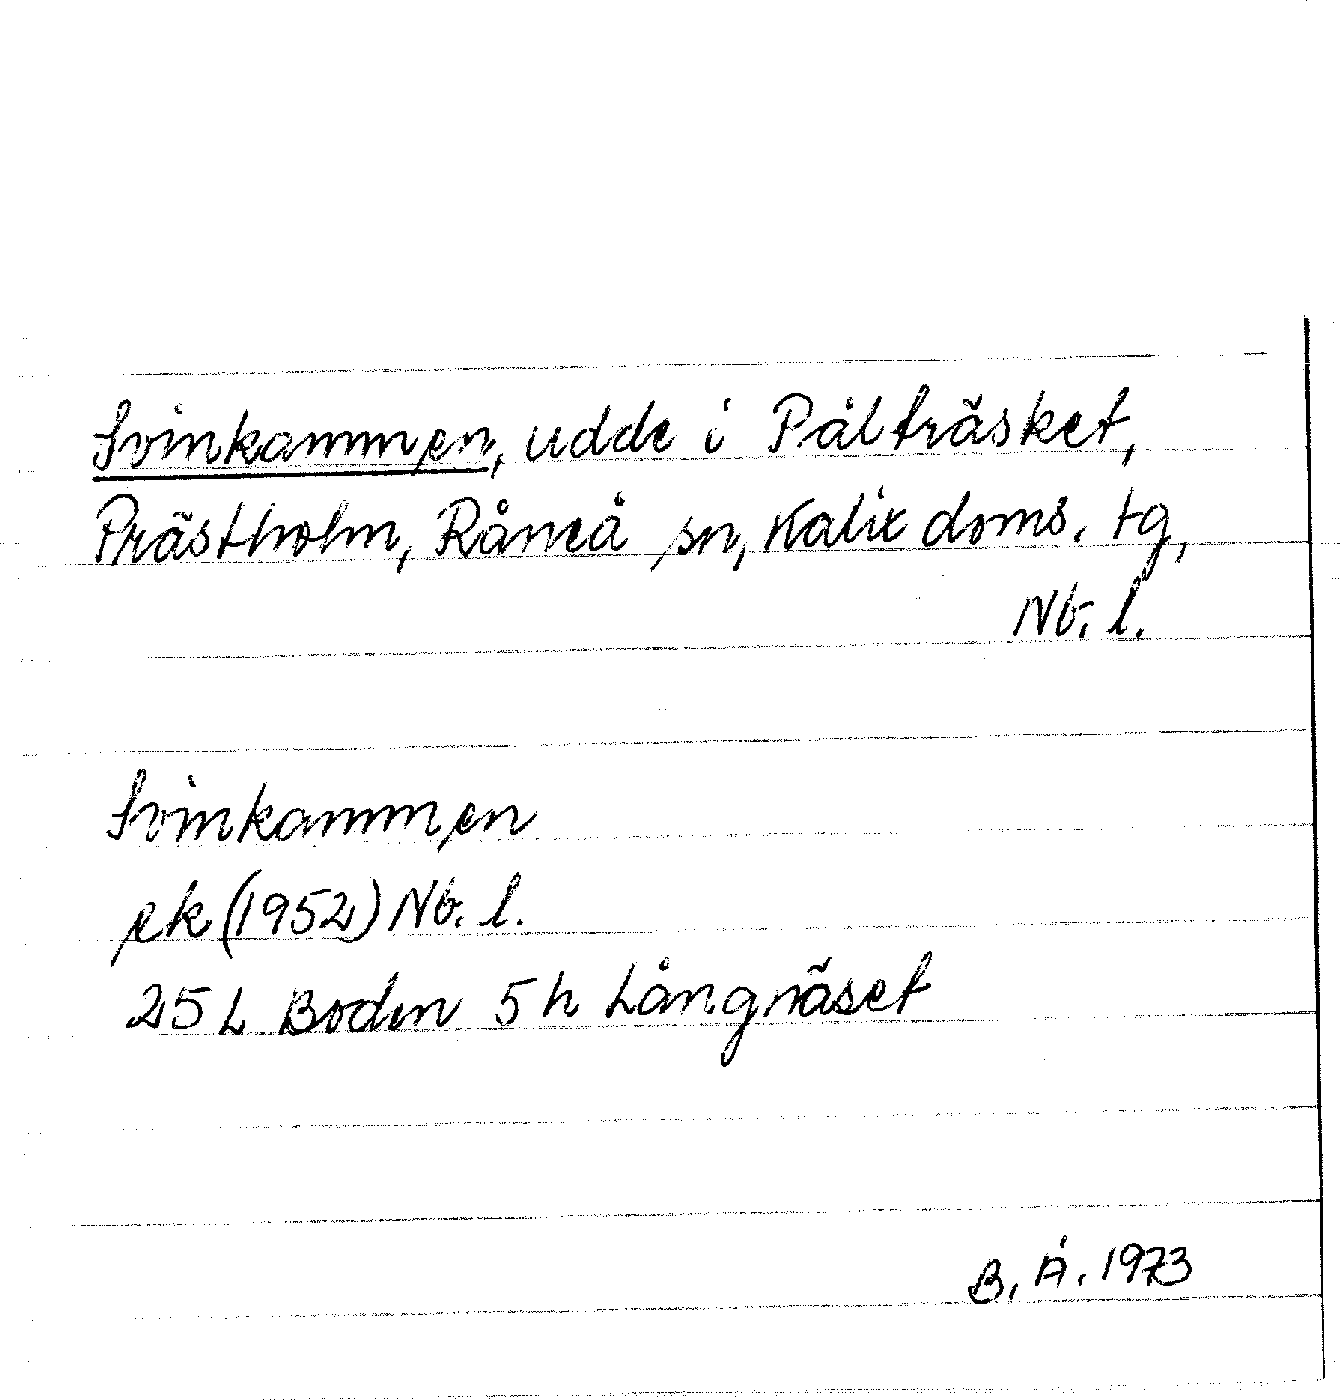 Svinkammen, udde i Pålträsket,
Prästholm, Råneå sn, Kalix doms. tg,
Nb. l.
Svinkammen
ek (1952) Nb. l.
25 L Boden 5 h Långnäset
B. Å. 1973